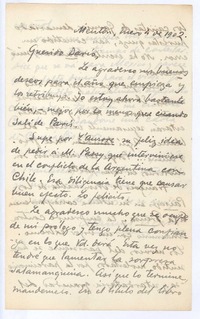 Menton, Enero 4 de 1902
Querido Darío,
Le agradezco sus buenos
deseos para el año que empieza y
los retribuyo. Yo estoy ahora bastante
bien, – mejor por lo menos que cuando
salí de París.
Supe por l'aurore su feliz idea
de pedir á M. Passy que interviniese
en el conflicto de la Argentina con
Chile. Esa diligencia tiene que causar
buen efecto. Lo felicito.
Le agradezco mucho que se ocupe
de mi prólogo y tengo plena confianza
en lo que Vd. hará. Esta vez no
tendré que lamentar la sorpresa
Salamanquina. Así que lo termine,
mándemelo. En el título del libro